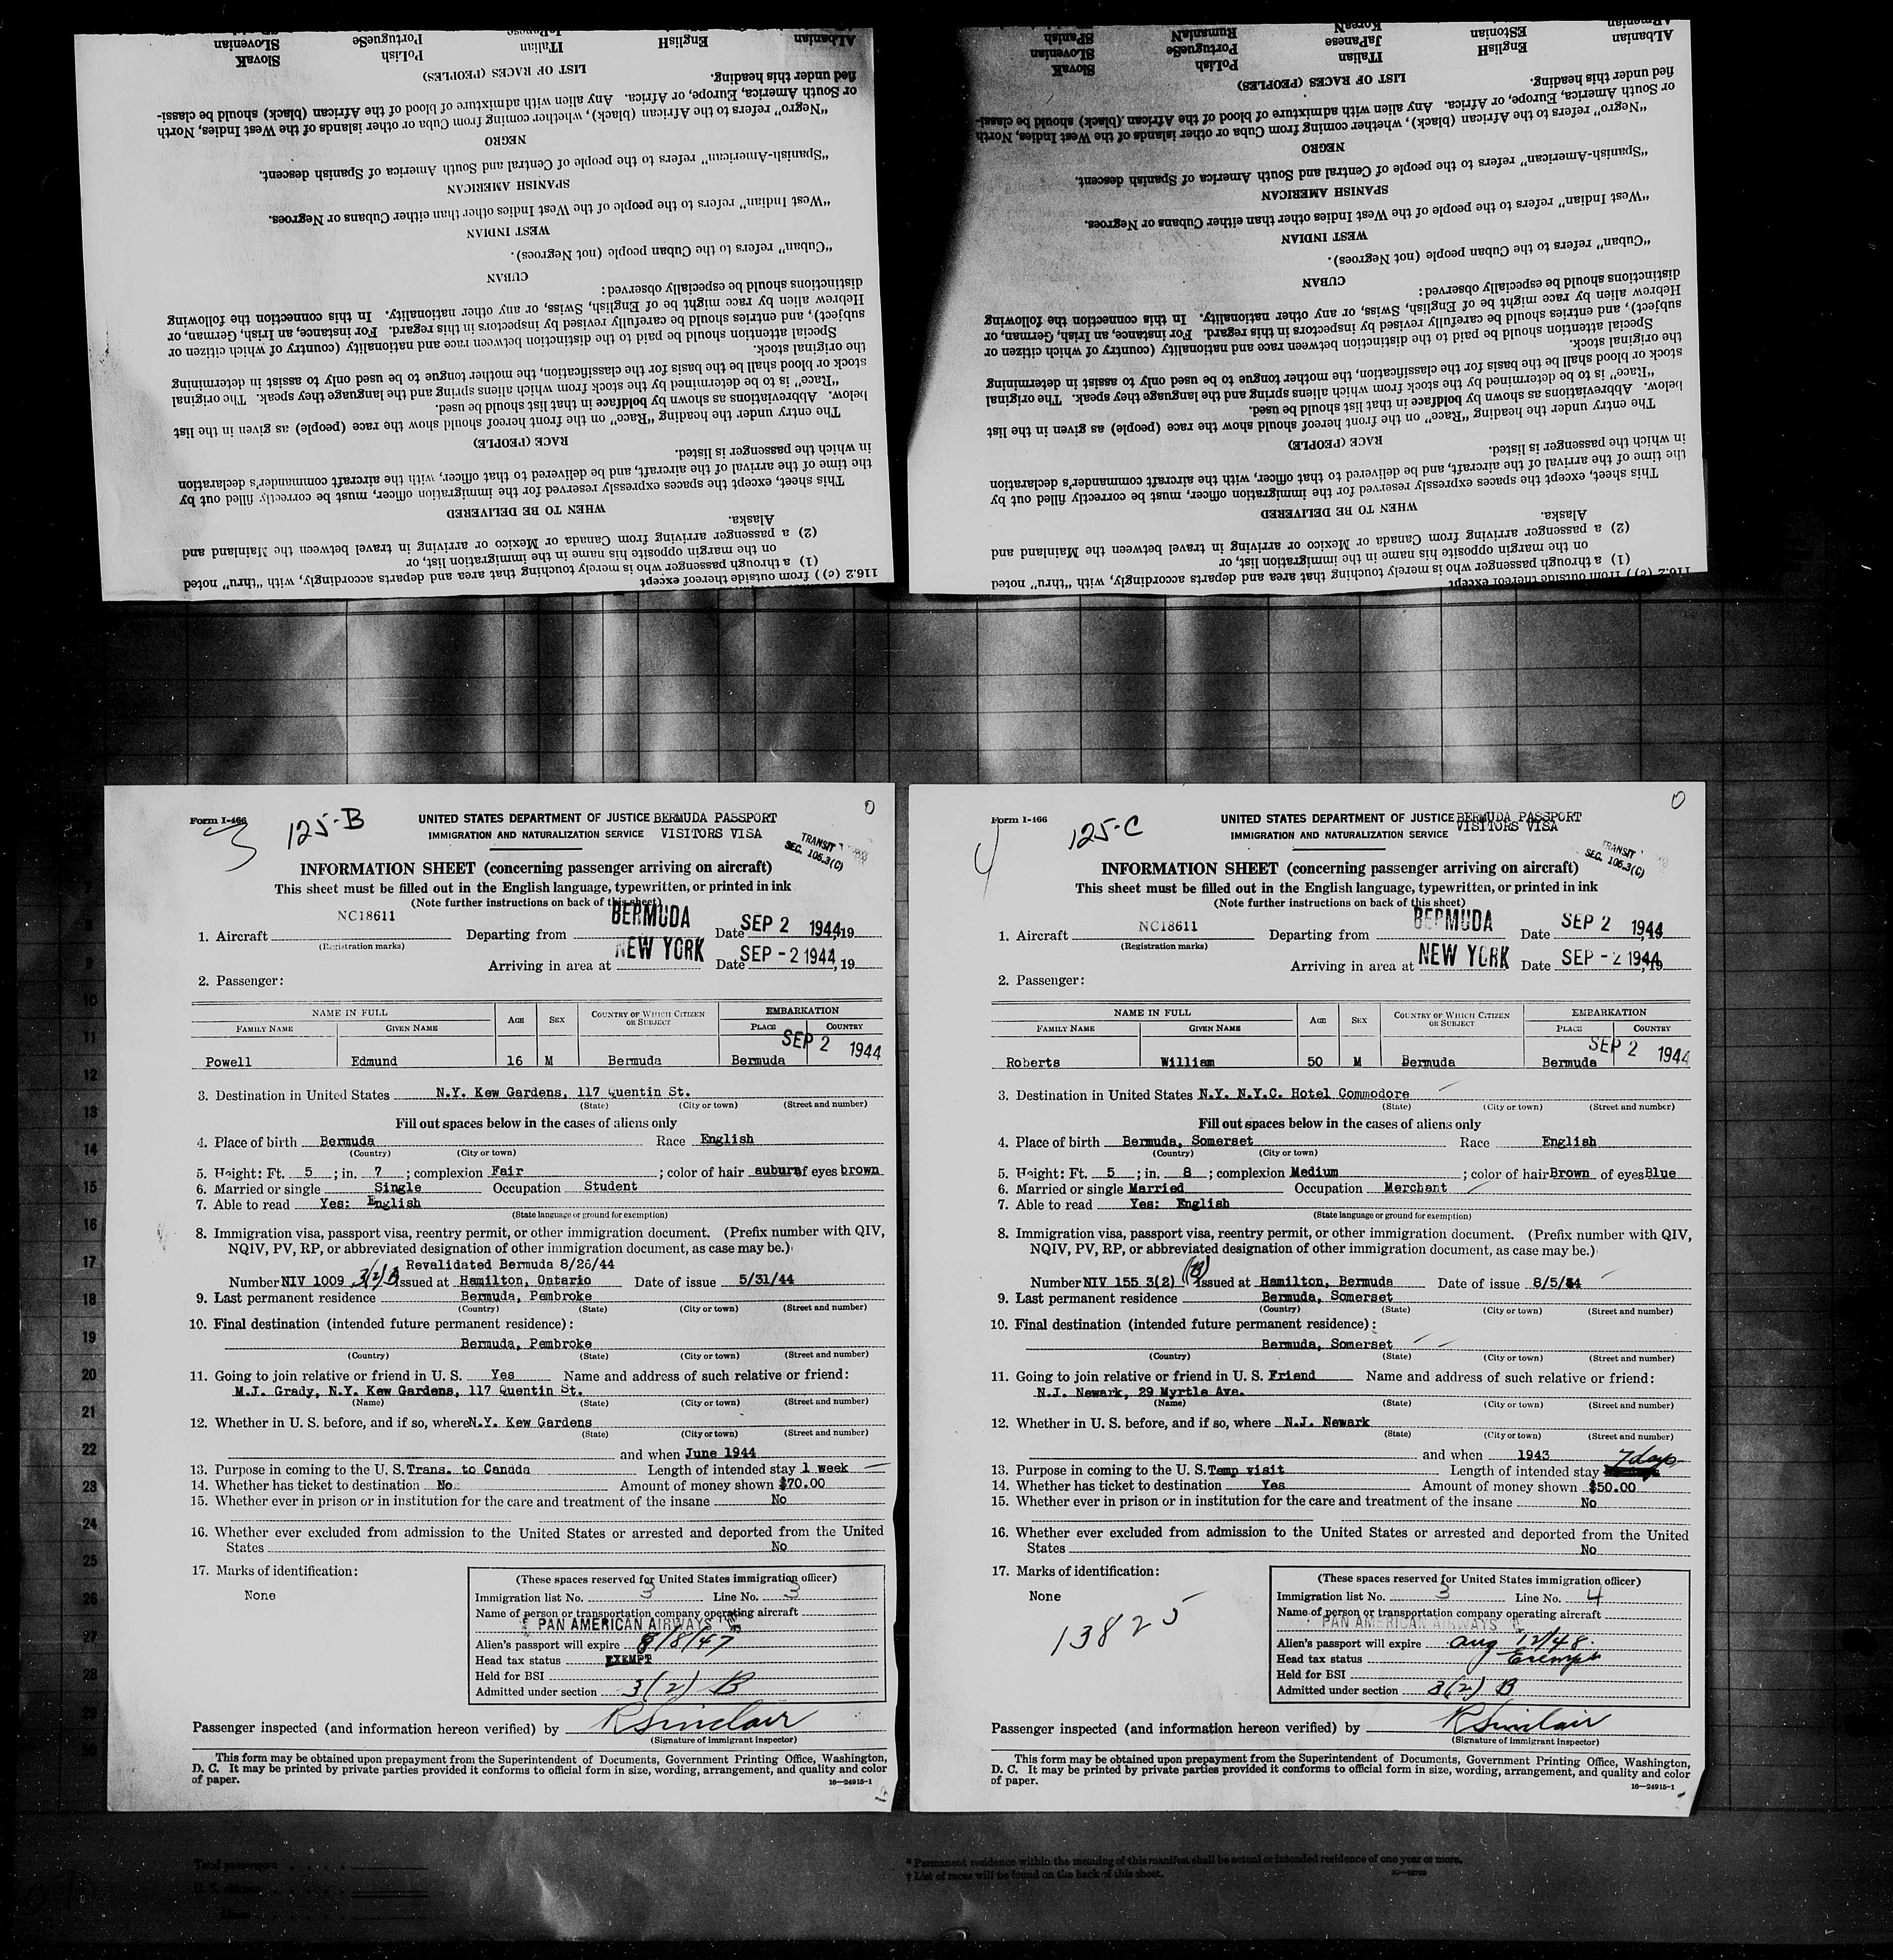 116.2 (c)) from outside thereof except
(1) a through passenger who is merely touching that area and departs accordingly, with "thru" noted
on the margin opposite his name in the immigration list, or
(2) a passenger arriving from Canada or Mexico or arriving in travel between the Mainland and
Alaska.
WHEN TO BE DELIVERED
This sheet, except the spaces expressly reserved for the immigration officer, must be correctly filled out by
the time of the arrival of the aircraft, and be delivered to that officer, with the aircraft commander's declaration
in which the passenger is listed.
RACE (PEOPLE)
The entry under the heading "Race" on the front hereof should show the race (people) as given in the list
below. Abbreviations as shown by boldface in that list should be used.
"Race" is to be determined by the stock from which aliens spring and the language they speak. The original
stock or blood shall be the basis for the classification, the mother tongue to be used only to assist in determining
the original stock.
Special attention should be paid to the distinction between race and nationality (country of which citizen or
subject), and entries should be carefully revised by inspectors in this regard. For instance, an Irish, German, or
Hebrew alien by race might be of English, Swiss, or any other nationality. In this connection the following
distinctions should be especially observed:
CUBAN
"Cuban" refers to the Cuban people (not Negroes).
WEST INDIAN
"West Indian" refers to the people of the West Indies other than either Cubans or Negroes.
SPANISH AMERICAN
"Spanish-American" refers to the people of Central and South America of Spanish descent.
NEGRO
"Negro" refers to the African (black), whether coming from Cuba or other islands of the West Indies, North
or South America, Europe, or Africa. Any alien with admixture of blood of the African (black) should be classi-
fied under this heading.
LIST OF RACES (PEOPLES)
ALbanian EnglisH ITalian PoLish SlovaK
PortugueSe SLovenian
116.2 (c)) from outside thereof except
(1) a through passenger who is merely touching that area and departs accordingly, with "thru" noted
on the margin opposite his name in the immigration list, or
(2) a passenger arriving from Canada or Mexico or arriving in travel between the Mainland and
Alaska.
WHEN TO BE DELIVERED
This sheet, except the spaces expressly reserved for the immigration officer, must be correctly filled out by
the time of the arrival of the aircraft, and be delivered to that officer, with the aircraft commander's declaration
in which the passenger is listed.
RACE (PEOPLE)
The entry under the heading "Race" on the front hereof should show the race (people) as given in the list
below. Abbreviations as shown by boldface in that list should be used.
"Race" is to be determined by the stock from which aliens spring and the language they speak. The original
stock or blood shall be the basis for the classification, the mother tongue to be used only to assist in determining
the original stock.
Special attention should be paid to the distinction between race and nationality (country of which citizen or
subject), and entries should be carefully revised by inspectors in this regard. For instance, an Irish, German, or
Hebrew alien by race might be of English, Swiss, or any other nationality. In this connection the following
distinctions should be especially observed:
CUBAN
"Cuban" refers to the Cuban people (not Negroes).
WEST INDIAN
"West Indian" refers to the people of the West Indies other than either Cubans or Negroes.
SPANISH AMERICAN
"Spanish-American" refers to the people of Central and South America of Spanish descent.
NEGRO
"Negro" refers to the African (black), whether coming from Cuba or other islands of the West Indies, North
or South America, Europe, or Africa. Any alien with admixture of blood of the African (black) should be classi-
fied under this heading.
LIST OF RACES (PEOPLES)
ALbanian EnglisH ITalian PoLish SlovaK
ARmenian EStonian JaPanese PortugueSe SLovenian
KoreaN RumaniaN SPanish
Form I-466
3
125-B
0
UNITED STATES DEPARTMENT OF JUSTICE BERMUDA PASSPORT
IMMIGRATION AND NATURALIZATION SERVICE VISITORS VISA
TRANSIT
SEC. 105.3(C)
INFORMATION SHEET (concerning passenger arriving on aircraft)
This sheet must be filled out in the English language, typewritten, or printed in ink
(Note further instructions on back of this sheet)
1. Aircraft NC18611 Departing from BERMUDA Date SEP 2 1944, 19
(Registration marks)
Arriving in area at NEW YORK Date SEP - 2 1944, 19
2. Passenger:
NAME IN FULL AGE SEX COUNTRY OF WHICH CITIZEN OR SUBJECT EMBARKATION
FAMILY NAME GIVEN NAME PLACE COUNTRY
SEP 2 1944
Powell Edmund 16 M Bermuda Bermuda
3. Destination in United States N.Y. Kew Gardens, 117 Quentin St.
(State) (City or town) (Street and number)
Fill out spaces below in the cases of aliens only
4. Place of birth Bermuda Race English
(Country) (City or town)
5. Height: Ft. 5; in. 7; complexion Fair; color of hair auburn of eyes brown
6. Married or single Single Occupation Student
7. Able to read Yes: English
(State language or ground for exemption)
8. Immigration visa, passport visa, reentry permit, or other immigration document. (Prefix number with QIV,
NQIV, PV, RP, or abbreviated designation of other immigration document, as case may be.)
Revalidated Bermuda 8/26/44
Number NIV 1009 3(2)B Issued at Hamilton, Ontario Date of issue 5/31/44
9. Last permanent residence Bermuda, Pembroke
(Country) (State) (City or town) (Street and number)
10. Final destination (intended future permanent residence):
Bermuda, Pembroke
(Country) (State) (City or town) (Street and number)
11. Going to join relative or friend in U. S. Yes Name and address of such relative or friend:
M.J. Grady, N.Y. Kew Gardens, 117 Quentin St.
(Name) (State) (City or town) (Street and number)
12. Whether in U. S. before, and if so, where N.Y. Kew Gardens
(State) (City or town) (Street and number)
and when June 1944
13. Purpose in coming to the U. S. Trans. to Canada Length of intended stay 1 week
14. Whether has ticket to destination No Amount of money shown $70.00
15. Whether ever in prison or in institution for the care and treatment of the insane No
16. Whether ever excluded from admission to the United States or arrested and deported from the United
States No
17. Marks of identification:
None
(These spaces reserved for United States immigration officer)
Immigration list No. 3 Line No. 3
Name of person or transportation company operating aircraft
PAN AMERICAN AIRWAYS
Alien's passport will expire 8/8/47
Head tax status EXEMPT
Held for BSI
Admitted under section 3(2) B
Passenger inspected (and information hereon verified) by R Sinclair
(Signature of immigrant inspector)
This form may be obtained upon prepayment from the Superintendent of Documents, Government Printing Office, Washington,
D. C. It may be printed by private parties provided it conforms to official form in size, wording, arrangement, and quality and color
of paper.
16—24915-1
Form I-466
4
125-C
0
UNITED STATES DEPARTMENT OF JUSTICE BERMUDA PASSPORT
IMMIGRATION AND NATURALIZATION SERVICE VISITORS VISA
TRANSIT
SEC. 105.3(C)
INFORMATION SHEET (concerning passenger arriving on aircraft)
This sheet must be filled out in the English language, typewritten, or printed in ink
(Note further instructions on back of this sheet)
1. Aircraft NC18611 Departing from BERMUDA Date SEP 2 1944
(Registration marks)
Arriving in area at NEW YORK Date SEP - 2 1944, 19
2. Passenger:
NAME IN FULL AGE SEX COUNTRY OF WHICH CITIZEN OR SUBJECT EMBARKATION
FAMILY NAME GIVEN NAME PLACE COUNTRY
SEP 2 1944
Roberts William 50 M Bermuda Bermuda
3. Destination in United States N.Y. N.Y.C. Hotel Commodore
(State) (City or town) (Street and number)
Fill out spaces below in the cases of aliens only
4. Place of birth Bermuda, Somerset Race English
(Country) (City or town)
5. Height: Ft. 5; in. 8; complexion Medium; color of hair Brown of eyes Blue
6. Married or single Married Occupation Merchant
7. Able to read Yes: English
(State language or ground for exemption)
8. Immigration visa, passport visa, reentry permit, or other immigration document. (Prefix number with QIV,
NQIV, PV, RP, or abbreviated designation of other immigration document, as case may be.)
Number NIV 155 3(2) (B) Issued at Hamilton, Bermuda Date of issue 8/5/44
9. Last permanent residence Bermuda, Somerset
(Country) (State) (City or town) (Street and number)
10. Final destination (intended future permanent residence):
Bermuda, Somerset
(Country) (State) (City or town) (Street and number)
11. Going to join relative or friend in U. S. Friend Name and address of such relative or friend:
N.J. Newark, 29 Myrtle Ave.
(Name) (State) (City or town) (Street and number)
12. Whether in U. S. before, and if so, where N.J. Newark
(State) (City or town) (Street and number)
and when 1943
13. Purpose in coming to the U. S. Temp visit Length of intended stay 7 days
14. Whether has ticket to destination Yes Amount of money shown $50.00
15. Whether ever in prison or in institution for the care and treatment of the insane No
16. Whether ever excluded from admission to the United States or arrested and deported from the United
States No
17. Marks of identification:
None
13825
(These spaces reserved for United States immigration officer)
Immigration list No. 3 Line No. 4
Name of person or transportation company operating aircraft
PAN AMERICAN AIRWAYS
Alien's passport will expire Aug 12/48.
Head tax status Exempt
Held for BSI
Admitted under section 3(2) B
Passenger inspected (and information hereon verified) by R Sinclair
(Signature of immigrant inspector)
This form may be obtained upon prepayment from the Superintendent of Documents, Government Printing Office, Washington,
D. C. It may be printed by private parties provided it conforms to official form in size, wording, arrangement, and quality and color
of paper.
16—24915-1
7
8
9
10
11
12
13
14
15
16
17
18
19
20
21
22
23
24
25
26
27
28
29
30
Total passengers
U. S. citizens
Aliens
* Permanent residence within the meaning of this manifest shall be actual or intended residence of one year or more.
† List of races will be found on the back of this sheet.